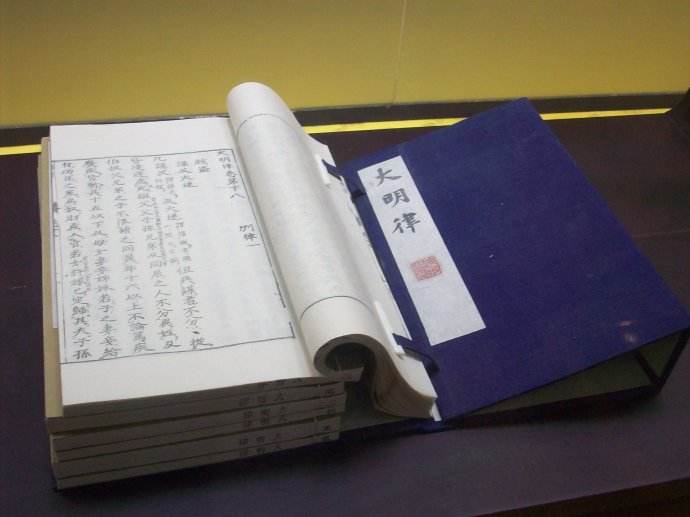 大明律
大明律卷第十八
刑律一
賊盜
謀反大逆
凡謀反及大逆但共謀者不分首從
皆凌遲處死祖父父子孫兄弟及同居之人不分異姓及
伯叔父兄弟之子不限籍之同異年十六以上不論篤疾
廢疾皆斬其十五以下及母女妻妾姊妹若子之妻妾給
付功臣之家為奴財產入官若女許嫁已定歸其夫子孫